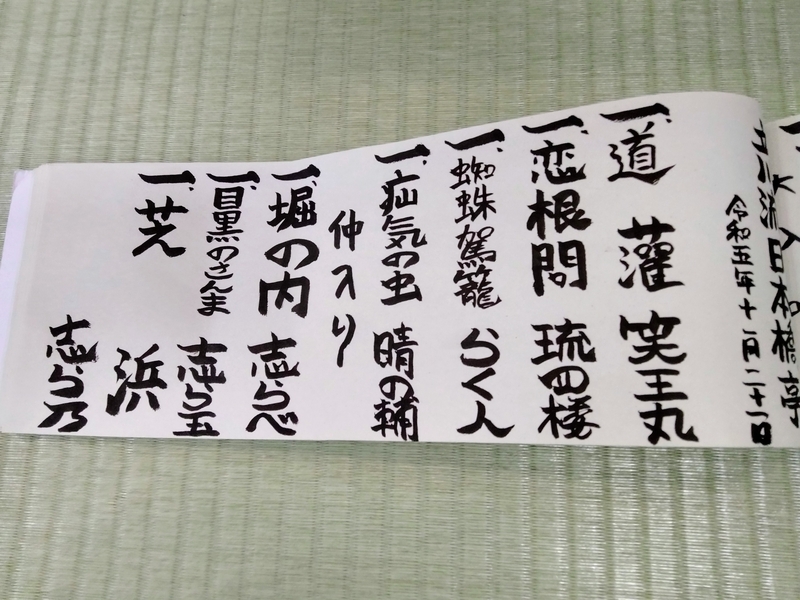 立川流日本橋亭
令和五年十一月二十一日
一、道灌 笑王丸
一、恋根問 琉四楼
一、蜘蛛駕籠 らく人
一、疝気の虫 晴の輔
仲入り
一、堀の内 志らべ
一、目黒のさんま 志ら玉
一、芝浜
志ら乃